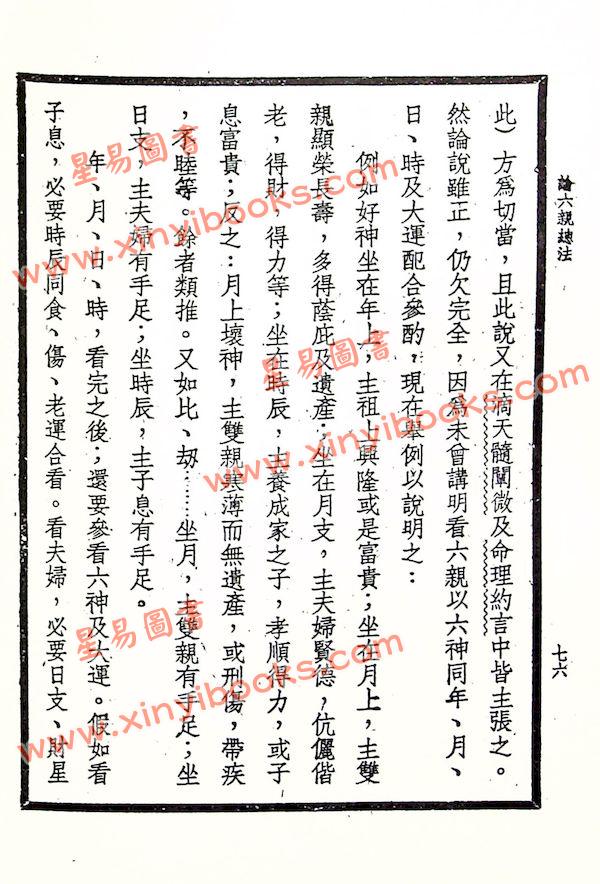 論六親總法
七六
此）方為切當，且此說又在滴天髓闡微及命理約言中皆主張之。
然論說雖正，仍欠完全，因為未曾講明看六親以六神同年、月、
日、時及大運配合參酌，現在舉例以說明之：
例如好神坐在年上，主祖上興隆或是富貴；坐在月上，主雙
親顯榮長壽，多得蔭庇及遺產；坐在月支，主夫婦賢德，伉儷偕
老，得財，得力等；坐在時辰，主養成家之子，孝順得力，或子
息富貴；反之：月上壞神，主雙親寒薄而無遺產，或刑傷，帶疾
，不睦等。餘者類推。又如比、劫……坐月，主雙親有手足；坐
日支，主夫婦有手足；坐時辰，主子息有手足。
年、月、日、時，看完之後；還要參看六神及大運。假如看
子息，必要時辰同食、傷、老運合看。看夫婦，必要日支、財星
星易圖書
www.xinyibooks.com
星易圖書
www.xinyibooks.com
星易圖書
www.xinyibooks.com